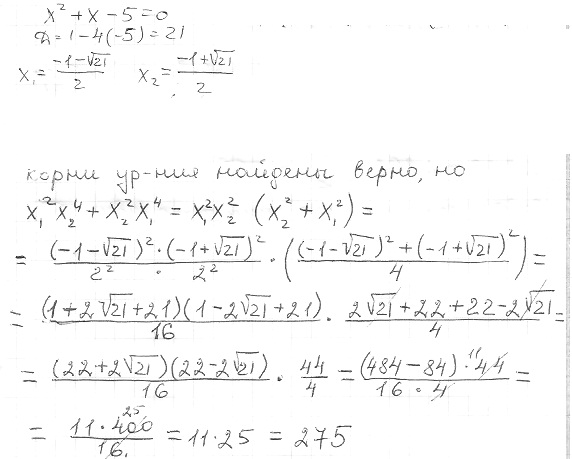 x² + x - 5 = 0
D = 1 - 4(-5) = 21
x₁ = (-1-√21)/2   x₂ = (-1+√21)/2
корни ур-ния найдены верно, но
x₁²x₂⁴ + x₂²x₁⁴ = x₁²x₂² (x₂² + x₁²) =
= ((-1-√21)² · (-1+√21)²)/(2² · 2²) · (((-1-√21)² + (-1+√21)²)/4) =
= ((1+2√21+21)(1-2√21+21))/16 · (2√21+22+22-2√21)/4 =
= ((22+2√21)(22-2√21))/16 · 44/4 = ((484-84) · 44 11)/(16 · 4) =
= (11 · 400 25)/16 = 11·25 = 275